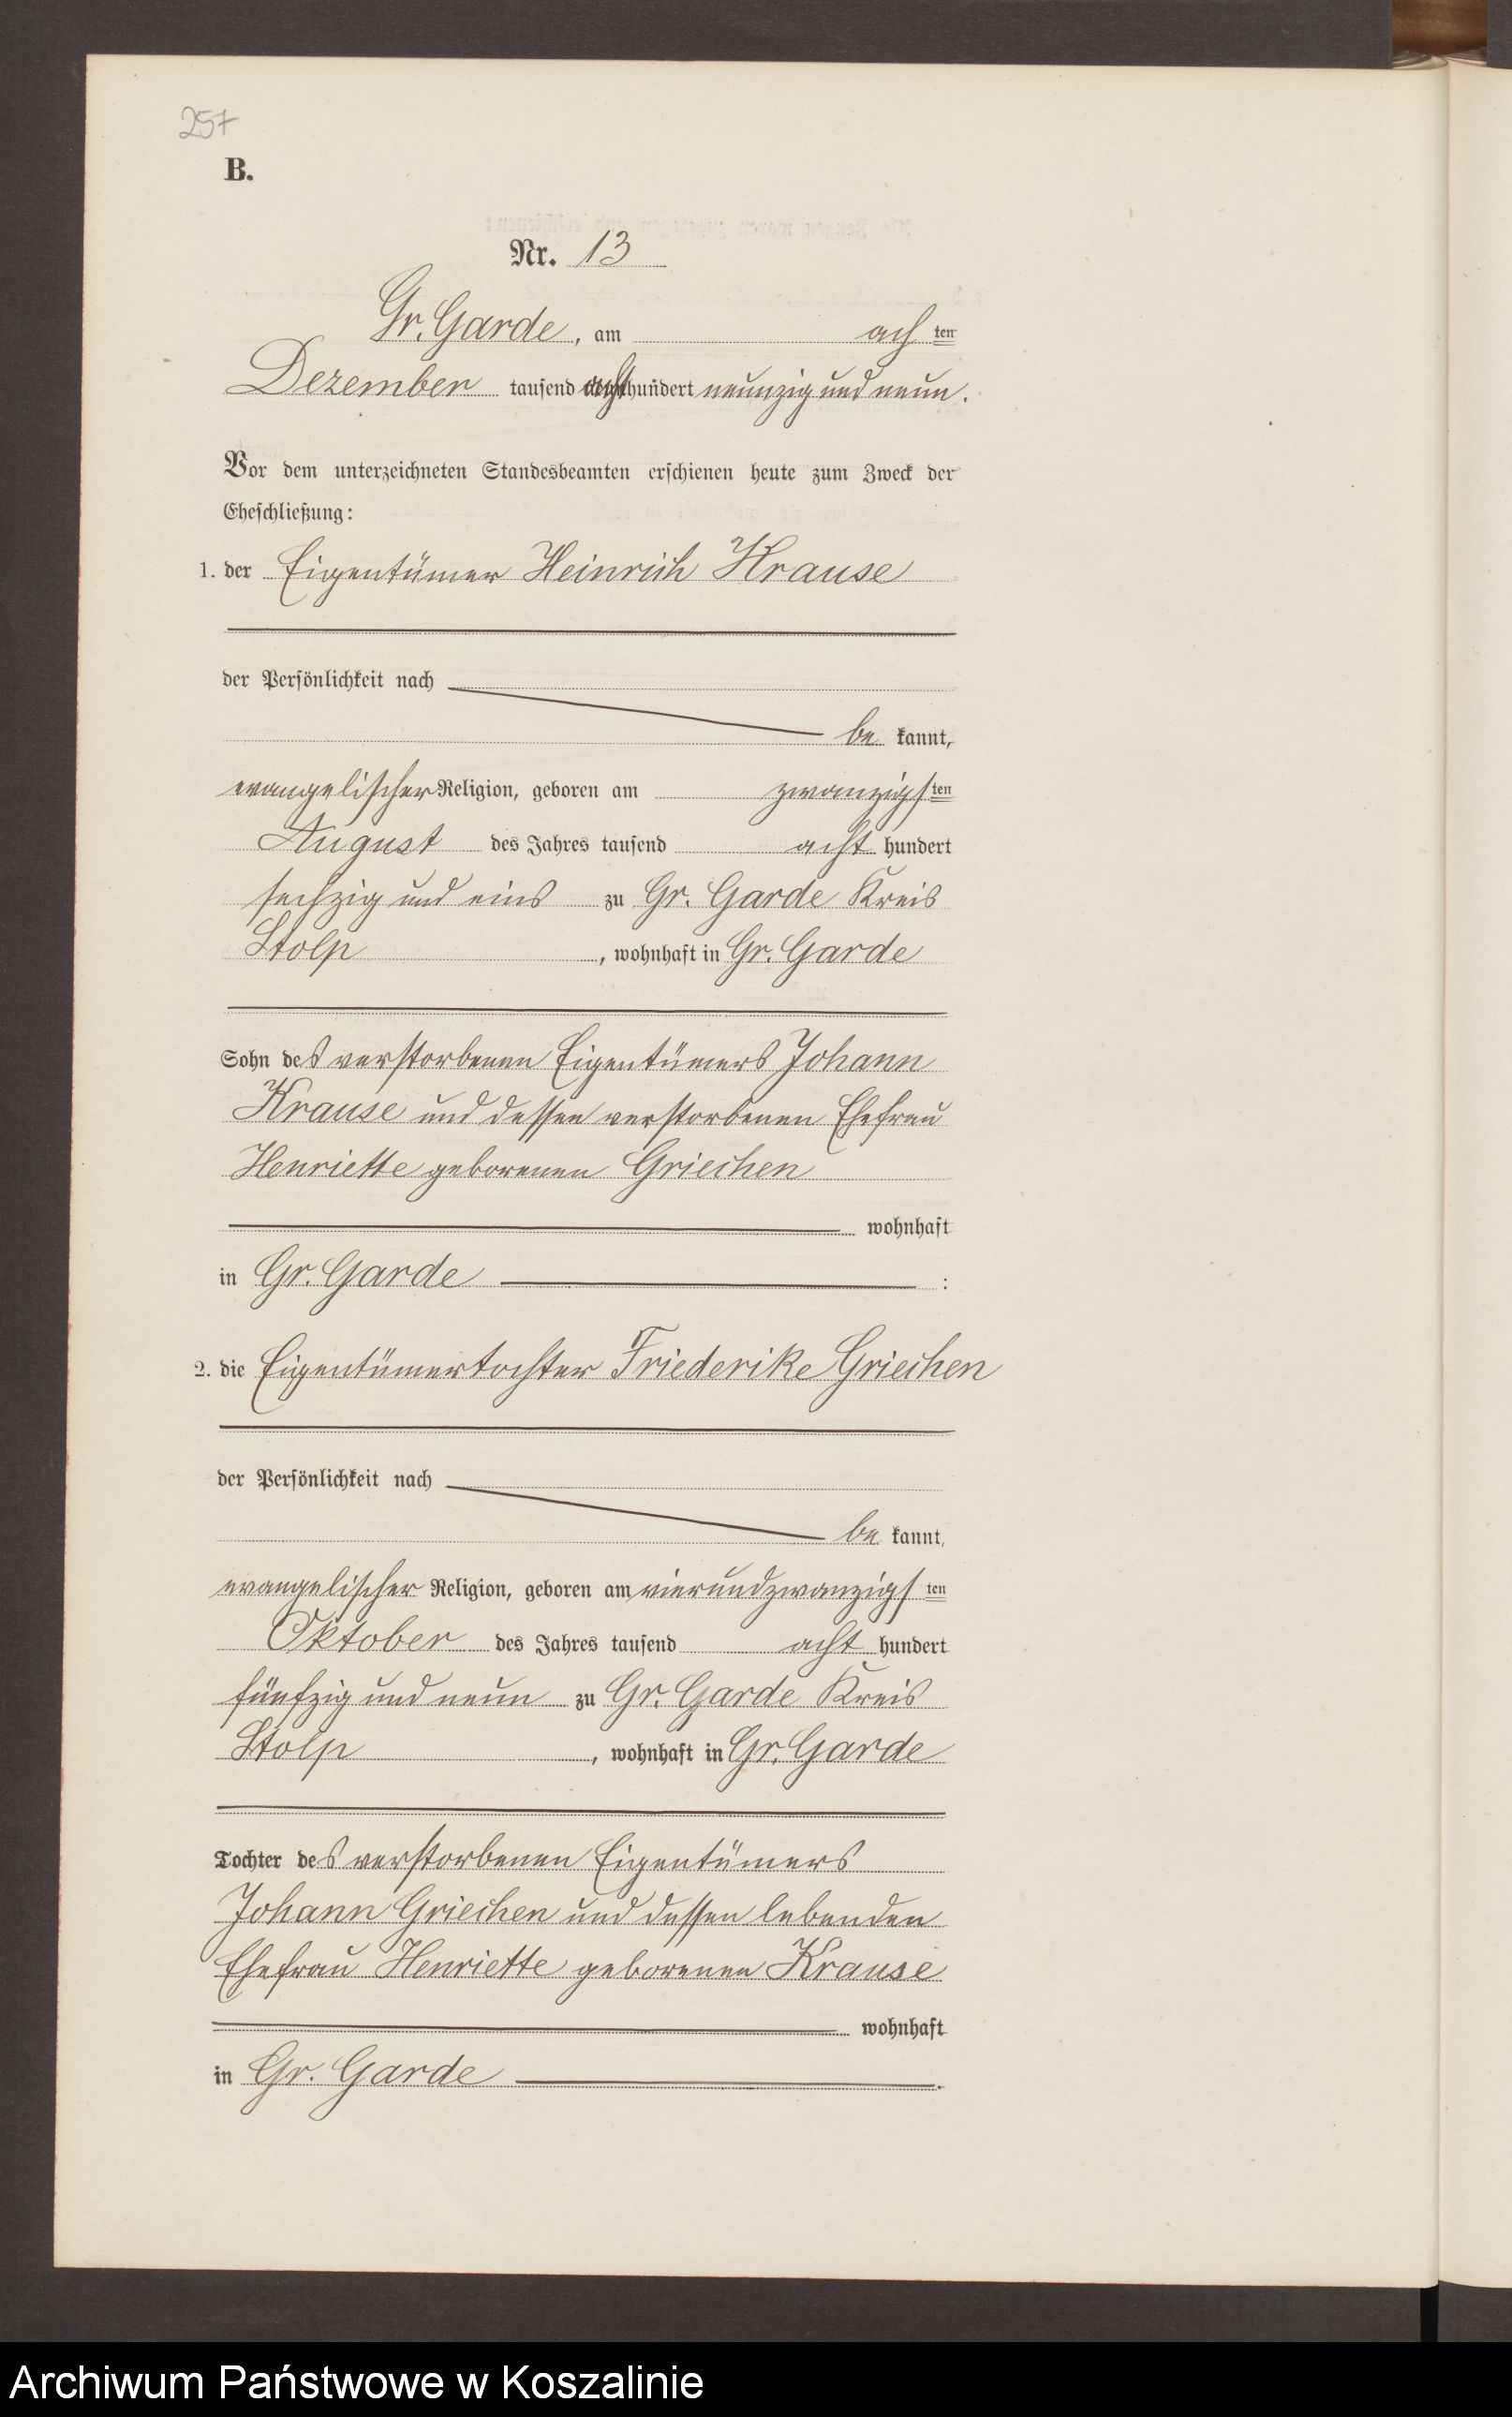 257
B.
Nr. 13
Gr. Garde, am ach ten
Dezember tausend acht hundert neunzig und neun.
Vor dem unterzeichneten Standesbeamten erschienen heute zum Zweck der
Eheschließung:
1. der Eigentümer Heinrich Krause
der Persönlichkeit nach
be kannt,
evangelischer Religion, geboren am zwanzigs ten
August des Jahres tausend acht hundert
sechzig und eins zu Gr. Garde Kreis
Stolp, wohnhaft in Gr. Garde
Sohn des verstorbenen Eigentümers Johann
Krause und dessen verstorbenen Ehefrau
Henriette geborenen Griechen
wohnhaft
in Gr. Garde :
2. die Eigentümertochter Friederike Griechen
der Persönlichkeit nach
be kannt,
evangelischer Religion, geboren am vierundzwanzigs ten
Oktober des Jahres tausend acht hundert
fünfzig und neun zu Gr. Garde Kreis
Stolp, wohnhaft in Gr. Garde
Tochter des verstorbenen Eigentümers
Johann Griechen und dessen lebenden
Ehefrau Henriette geborenen Krause
wohnhaft
in Gr. Garde.
Archiwum Państwowe w Koszalinie